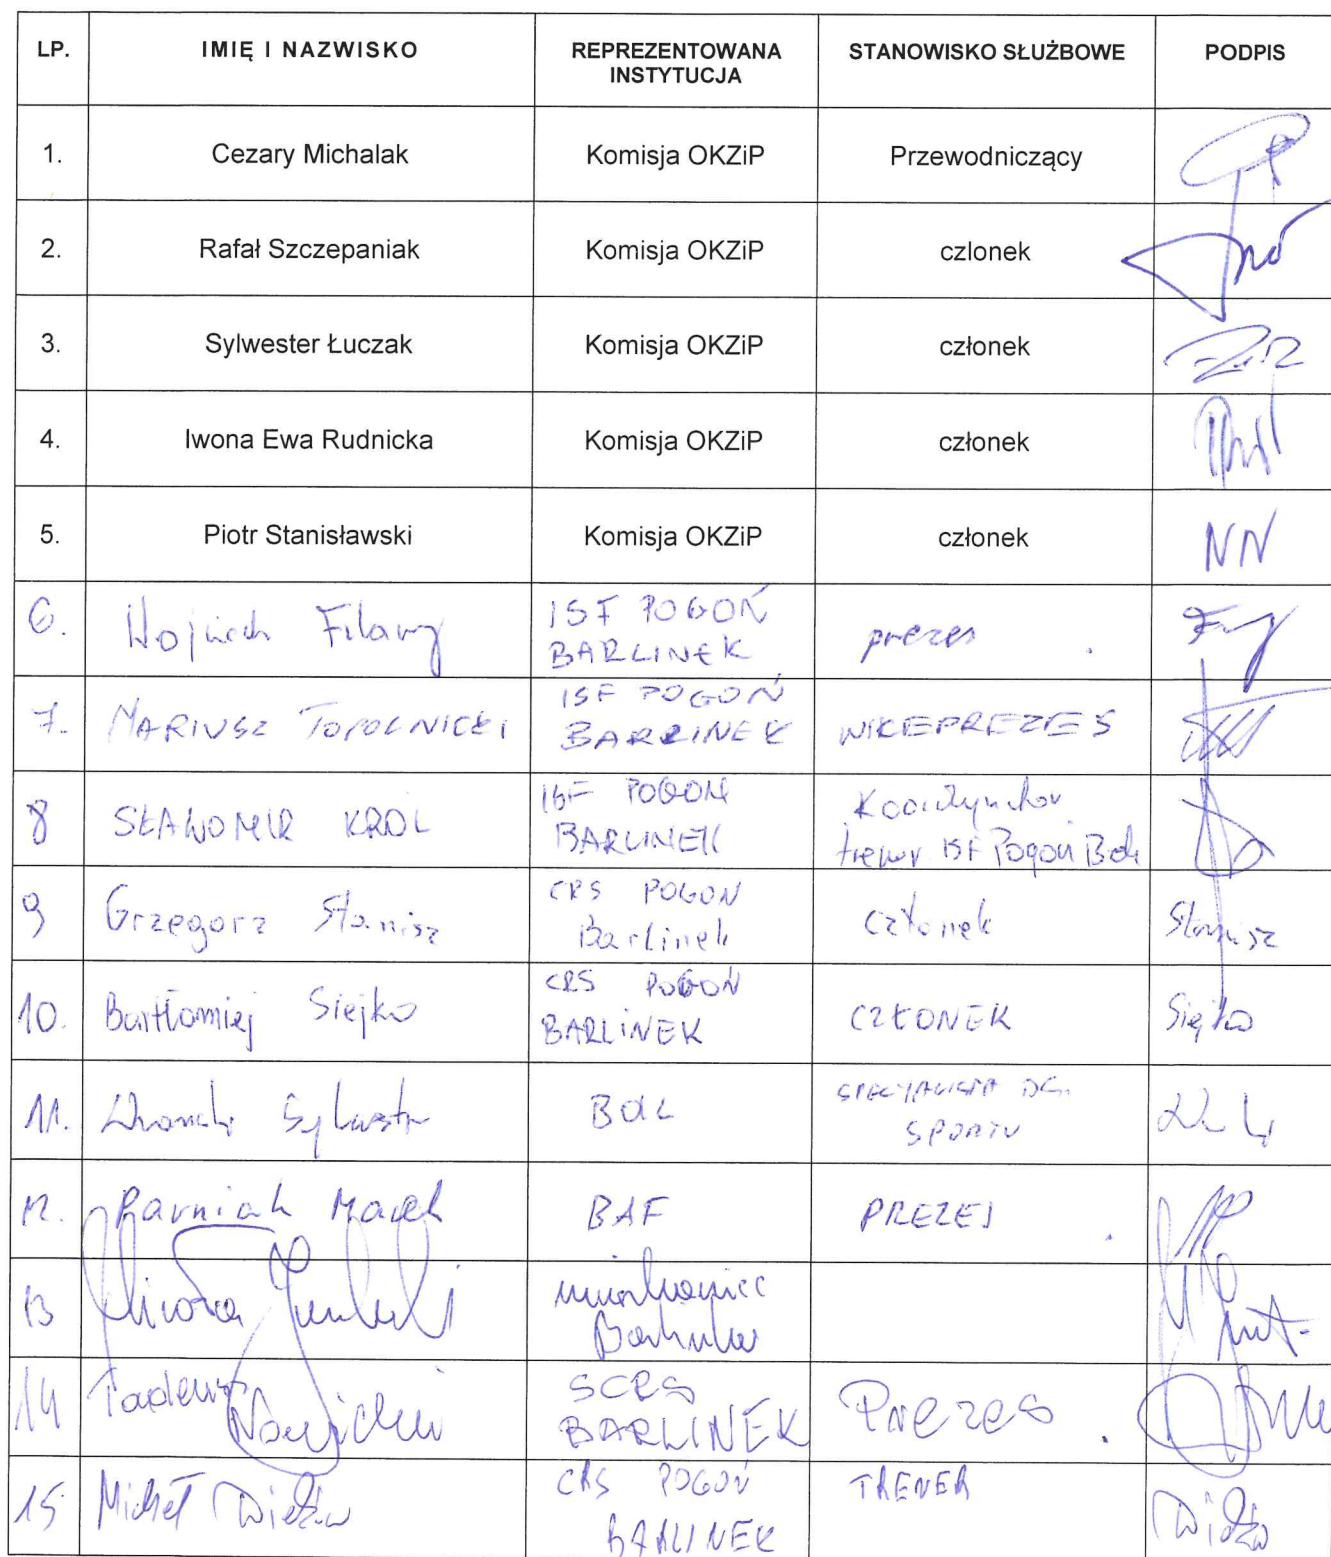 LP. IMIĘ I NAZWISKO REPREZENTOWANA INSTYTUCJA STANOWISKO SŁUŻBOWE PODPIS
1. Cezary Michalak Komisja OKZiP Przewodniczący
2. Rafał Szczepaniak Komisja OKZiP czlonek
3. Sylwester Łuczak Komisja OKZiP członek
4. Iwona Ewa Rudnicka Komisja OKZiP członek
5. Piotr Stanisławski Komisja OKZiP członek NN
6. Wojciech Filary ISF POGOŃ BARLINEK prezes
7. MARIUSZ TOPOLNICKI ISF POGOŃ BARLINEK WICEPREZES
8 SŁAWOMIR KRÓL ISF POGOŃ BARLINEK Koordynator trener ISF Pogoń
9 Grzegorz Stanisz CRS POGOŃ Barlinek członek Stanisz
10. Bartłomiej Siejko CRS POGOŃ BARLINEK CZŁONEK Siejko
11. SPECJALISTA DS. SPORTU
12. Marek BAF PREZES
13 mieszkaniec Barlinka
14 Tadeusz SCRS BARLINEK Prezes
15 Michał CRS POGOŃ BARLINEK TRENER